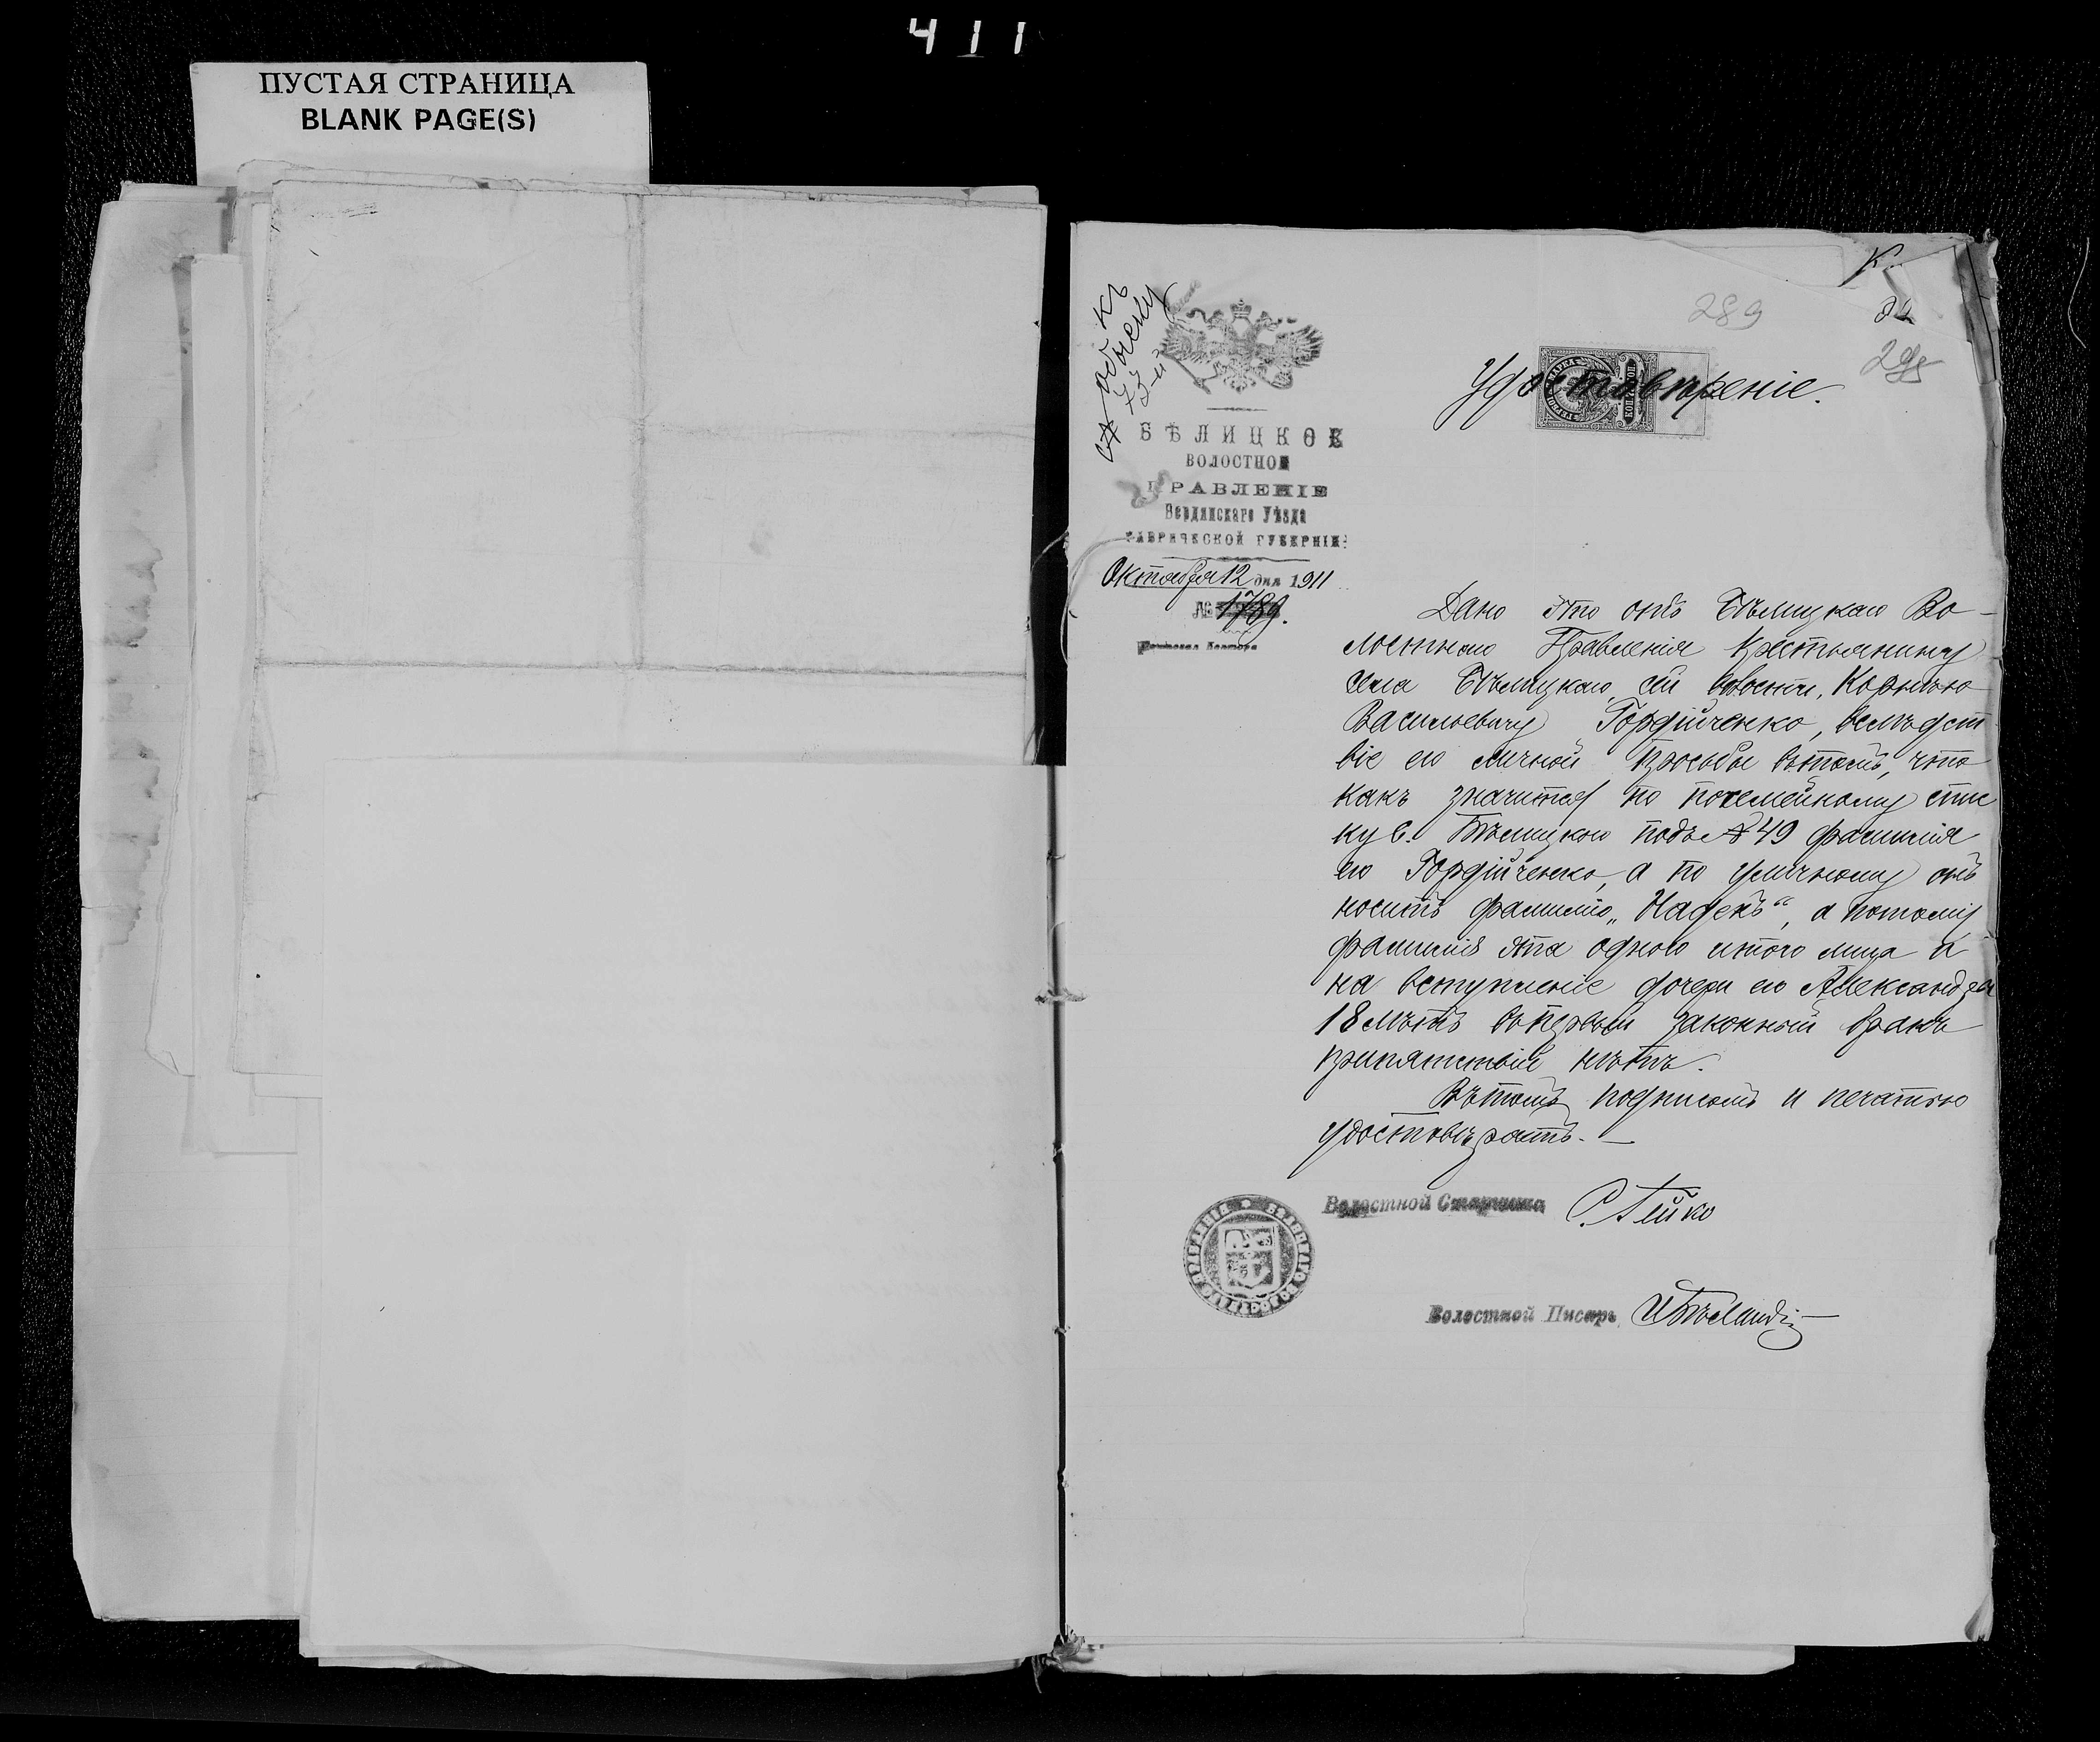 411
ПУСТАЯ СТРАНИЦА
BLANK PAGE(S)
К
289
Удостовѣреніе.
БѢЛИЦКОЕ
ВОЛОСТНОЕ
ПРАВЛЕНІЕ
Бердянскаго Уѣзда
ТАВРИЧЕСКОЙ ГУБЕРНІИ
Октября 12 дня 1911
№ 1789.
Дано это отъ Бѣлицкаго Во-
лостного Правленія Крестьянину
села Бѣлицкаго, сей волости, Корнѣю
Васильевичу Гордійченко, вслѣдст
віе его личной просьбы въ томъ, что
какъ значится по посемейному спис
ку с. Бѣлицкаго подъ № 49 фамилія
его Гордійченко, а по уличному онъ
носитъ фамилію „Надекъ“, а потому
фамилія эта одного и того лица и
на вступленіе дочери его Александры
18 лѣтъ въ первый законный бракъ
препятствій нѣтъ.
Въ томъ подписомъ и печатью
удостовѣряетъ. —
Волостной Старшина
Волостной Писарь